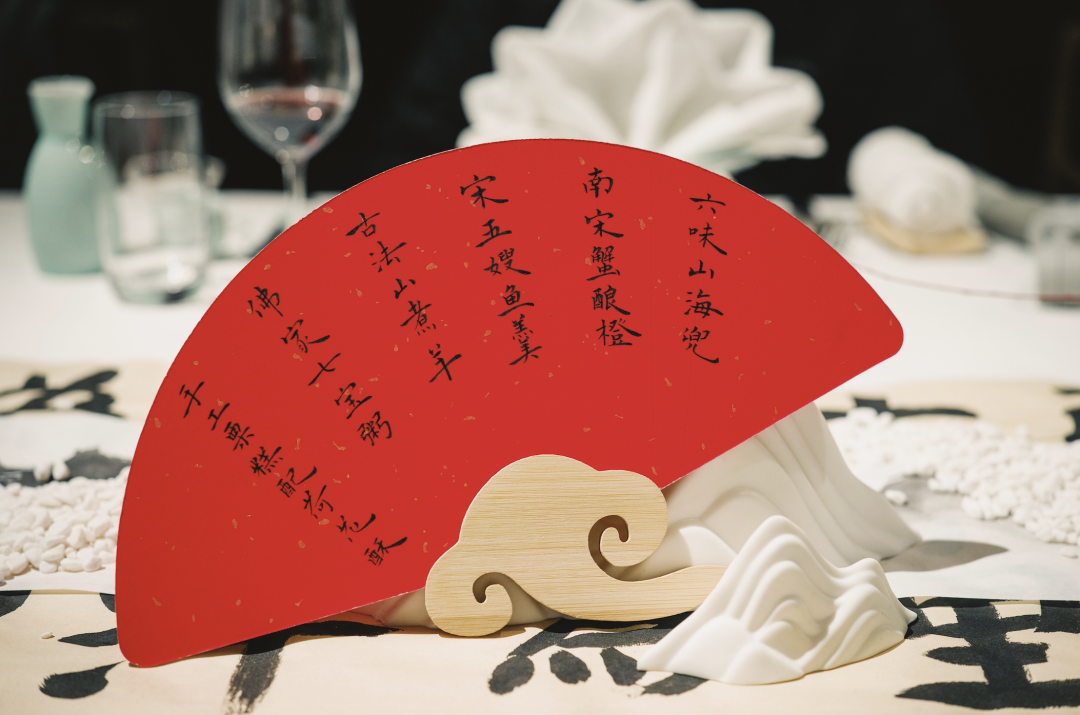 六味山海兜
南宋蟹酿橙
宋五嫂鱼羹
古法山煮羊
佛家七宝粥
手工栗糕配荷花酥